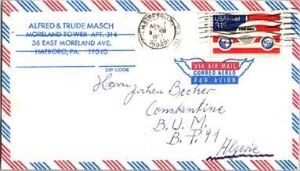 ALFRED & TRUDE MASCH
MORELAND TOWER APT. 314
36 EAST MORELAND AVE.
HATBORO, PA. 19040
ZIP CODE
USAirmail
31c
VIA AIR MAIL
CORREO AEREO
PAR AVION
Herrn Jochen Becher
Constantine
B.U.M.
B.P. 91
Algerie